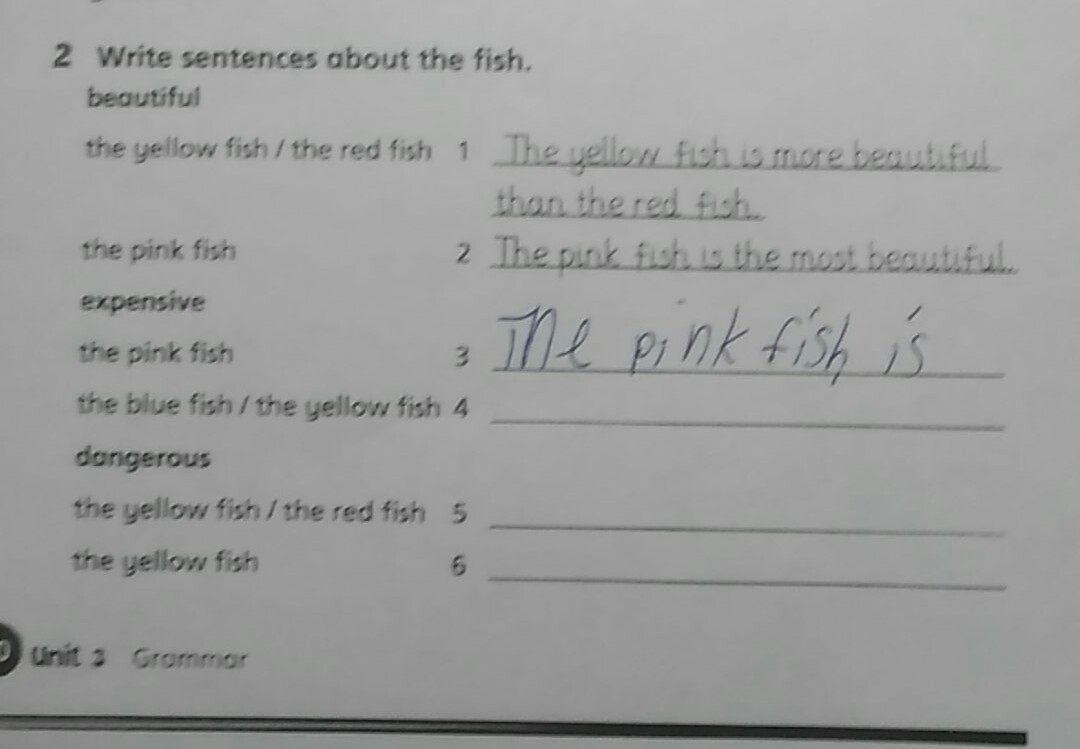 2 Write sentences about the fish.
beautiful
the yellow fish / the red fish 1 The yellow fish is more beautiful
than the red fish.
the pink fish 2 The pink fish is the most beautiful.
expensive
the pink fish 3 The pink fish is
the blue fish / the yellow fish 4
dangerous
the yellow fish / the red fish 5
the yellow fish 6
Unit 3 Grammar